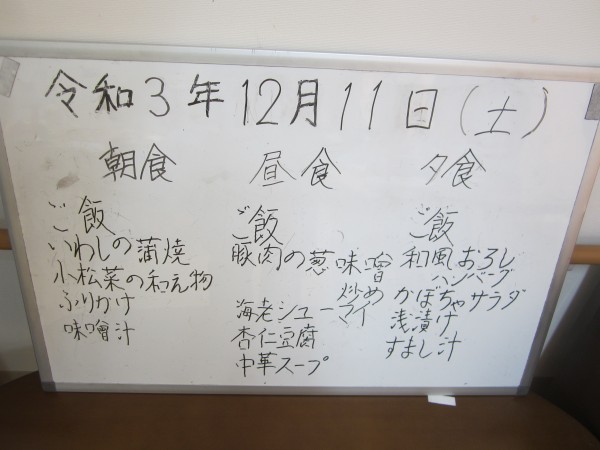 令和3年12月11日(土)
朝食
ご飯
いわしの蒲焼
小松菜の和え物
ふりかけ
味噌汁
昼食
ご飯
豚肉の葱味噌
炒め
海老シューマイ
杏仁豆腐
中華スープ
夕食
ご飯
和風おろし
ハンバーグ
かぼちゃサラダ
浅漬け
すまし汁